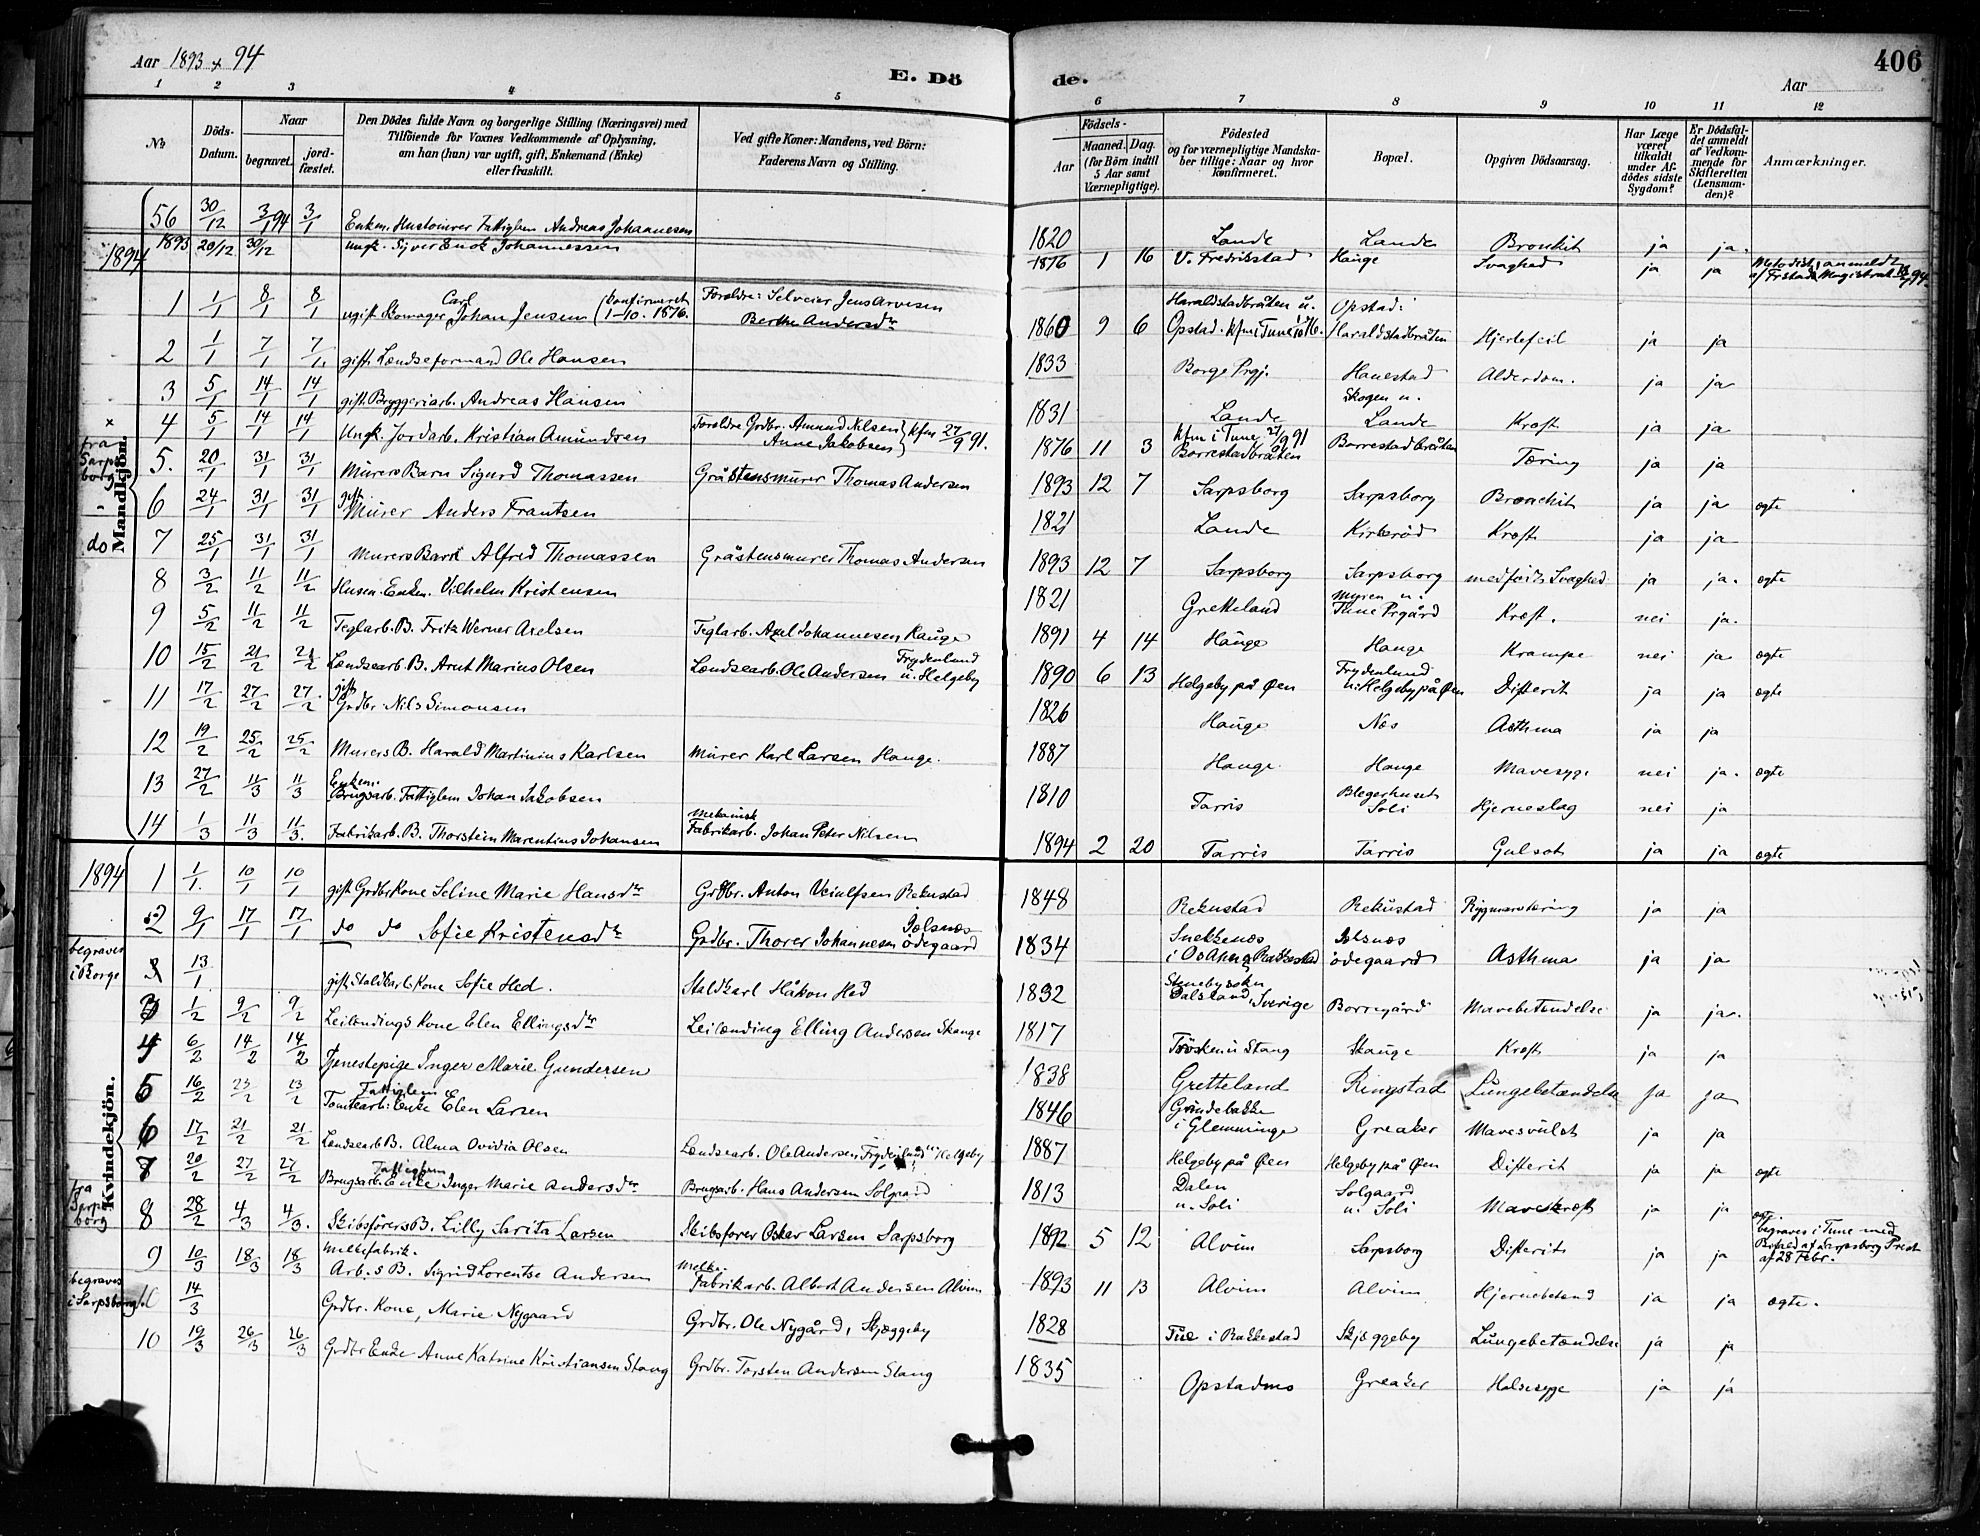 Aar 1893 & 94
E. Dö de.
Aar
406
1 2 3 4 5 6 7 8 9 10 11 12
No
Döds-Datum.
Naar
begravet.
jord-fæstet.
Den Dödes fulde Navn og borgerlige Stilling (Næringsvei) med
Tilföiende for Voxnes Vedkommende af Oplysning,
om han (hun) var ugift, gift, Enkemand (Enke)
eller fraskilt.
Ved gifte Koner: Mandens, ved Börn:
Faderens Navn og Stilling.
Födsels-
Aar
Maaned. Dag
(for Börn indtil
5 Aar samt
Værnepligtige).
Födested
og for værnepligtige Mandska-
ber tillige: Naar og hvor
Konfirmeret.
Bopæl.
Opgiven Dödsaarsag.
Har Læge
været
tilkaldt
under Af-
dödes sidste
Sygdom?
Er Dödsfal-
det anmeldt
af Vedkom-
mende for
Skifteretten
(Lensman-
den)?
Anmærkninger.
56 30/12 3/1 94 3/1 Enkem. Fattiglem Andreas Johannesen 1820 Lande Lande Bronkit ja ja.
1893 20/12 30/12 ungk. Syver Enok Johannessen 1876 1 16 V. Fredrikstad Hauge Svaghed ja ja Metodist, anmeldt
1894
1 1/1 8/1 8/1 ugift Skomager Carl Johan Jensen (konfirmeret 1-10. 1876. Foreldre: Selveier Jens Arvesen
Berthe Andersdr 1860 9 6 Haraldstadbråten u. Opstad. kfm i Tune Opstad: Haraldstadbråten Hjertefeil ja ja
2 1/1 7/1 7/1 gift Lændseformand Ole Hansen 1833 Borge Prgj. Hanestad Alderdom. ja ja
3 5/1 14/1 14/1 gift Bryggeriarb. Andreas Hansen 1831 Lande Skogen u. Lande Kræft ja ja
x
4 5/1 14/1 14/1 Ungk. Jordarb. Kristian Amundsen Foreldre Grdbr. Amund Nilsen
Anne Jakobsen } kfm 27/9 91. 1876 11 3 kfm i Tune 27/9 91 Borrestadbråten Borrestadbråten Tæring ja ja
fra Sarpsborg
5. 20/1 31/1 31/1 Murers Barn Sigurd Thomassen Gråstensmurer Thomas Andersen 1893 12 7 Sarpsborg Sarpsborg Bronchit ja ja ægte
6 24/1 31/1 31/1 gift Murer Anders Frantsen 1821 Lande Kirkerød Kræft ja ja
do
7 25/1 31/1 31/1 Murers Barn Alfred Thomassen Gråstensmurer Thomas Andersen 1893 12 7 Sarpsborg Sarpsborg medfødt Svaghed ja ja. ægte
8 3/2 11/2 11/2 Husm. Enkem. Vilhelm Kristensen 1821 Grekeland Myren u. Tune Prgård Kræft. nei ja.
9 5/2 11/2 11/2 Teglarb. B. Fritz Werner Axelsen Teglarb. Axel Johannesen Hauge 1891 4 14 Hauge Hauge Krampe nei ja ægte
10 15/2 21/2 21/2 Lændsearb. B. Arnt Marius Olsen Lændsearb. Ole Andersen Frydenlund u. Helgeby 1890 6 13 Helgeby på Øen Frydenlund u. Helgeby på Øen Difterit ja ja ægte
11 17/2 27/2 27/2 gift Grdbr Nils Simonsen 1826 Hauge Næs Asthma ja ja
12 19/2 25/2 25/2 Murers B. Harald Martinius Karlsen Murer Karl Larsen Hauge. 1887 Hauge. Hauge Mavesyge nei ja. ægte
13 27/2 11/3 11/3 Enkem. Brugsarb. Fattiglem Johan Jakobsen 1810 Tarris Blegerhuset Soli Hjerneslag nei ja
14 1/3 11/3 11/3. Fabrikarb. B. Thorstein Marentius Johansen Mekanisk Fabrikarb. Johan Peter Nilsen 1894 2 20 Tarris Tarris Gulsot ja ja ægte
Mandkjön.
1894
1 1/1. 10/1 10/1 gift Grdbr Kone Seline Marie Hansdr Grdbr. Anton Rekustad 1848 Rekustad Rekustad Rygmarvtæring ja ja
2 9/1 17/1 17/1 do do Sofie Kristensdr Grdbr. Thorer Johannesen ødegaard 1834 Snekkenæs Rakkestad ødegaard Asthma ja ja
begraves i Borge
13/1 gift Staldkarl Kone Sofie Hed. Staldkarl Håkon Hed 1832 Dalsland, Sverige Borregård Mavebetændelse ja ja.
3 1/2 9/2 9/2 Leilændings Kone Elen Ellingsdr Leilænding Elling Andersen Skauge 1817 Trøsken u Stang Skauge Kræft ja ja
4 6/2 14/2 14/2 Tjenestepige Inger Marie Gundersen 1838 Gretteland Ringstad Lungebetændelse ja ja
5 16/2 23/2 23/2 Fattiglem Tomtearb: Enke Elen Larsen 1846 Grindebakke i Glemminge Greaker Mavesvulst ja ja
6 17/2 21/2 21/2 Lændsearb B. Alma Ovidia Olsen Lændsearb. Ole Andersen Frydenlund u Helgeby 1887 Helgeby på Øen Helgeby på Øen Difterit ja ja ægte
7 20/2 27/2 27/2 Fattiglem Brugsarb. Enke Inger Marie Andersdr Brugsarb. Hans Andersen Solgaard 1813 Dalen u. Soli Solgaard u. Soli Mavekræft ja ja
fra Sarpsborg
8 28/2 4/3 4/3. Skibsførers B. Lilly Sarita Larsen Skibsfører Oskar Larsen Sarpsborg 1892 5 12 Alvim Sarpsborg Difterit ja ja begraves i Tune med
af Sarpsborg Prest
af 28 Febr.
9 10/3 18/3 18/3 Melkefabrik. Arb.s B. Sigrid Lorentse Andersen Melke. Fabrikarb. Albert Andersen Alvim 1893 11 13 Alvim Alvim Hjernebetænd ja ja ægte.
begraves i Sarpsborg
14/3 Grdbr. Kone, Marie Nygaard Grdbr. Ole Nygård, Skjæggeby 1828 i Rakkestad Skjæggeby Lungebetændelse ja ja
10 19/3 26/3 26/3 Grdbr Enke Anne Katrine Kristiansen Stang Grdbr. Torsten Andersen Stang 1835 Opstadmo Greaker Halssyge ja ja
Kvindekjön.